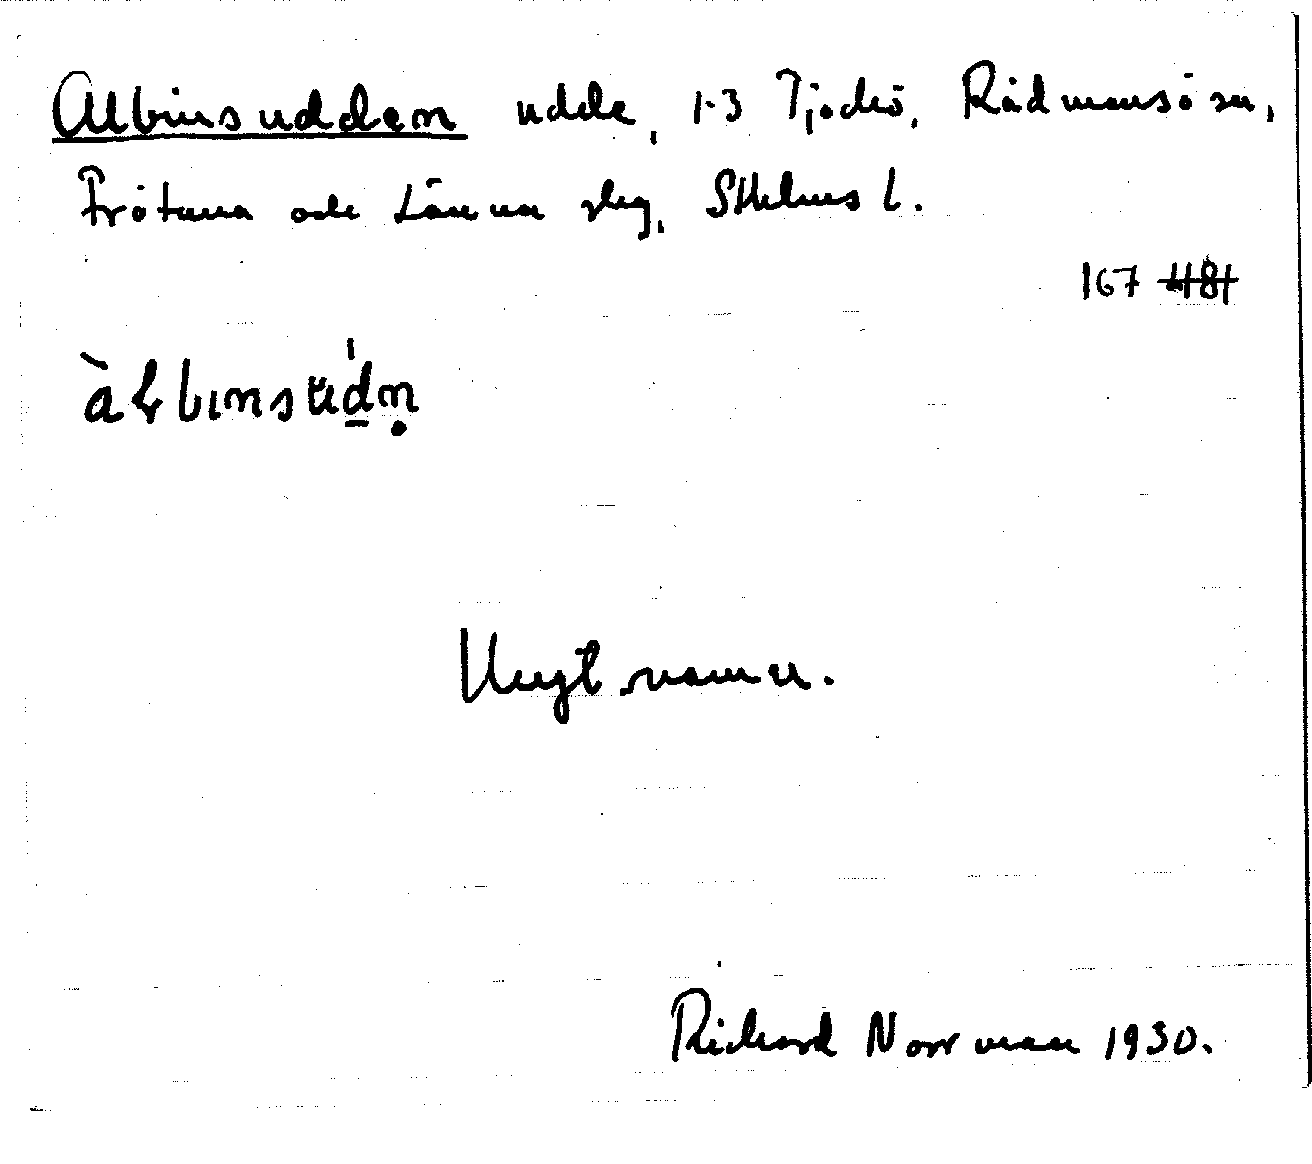 Albinsudden udde, 1-3 Tjockö, Rådmansö sn,
Frötuna och Länna slg, Sthlms l.
167 481
àlbinsúdn̥
Ungt namn.
Richard Norrman 1930.